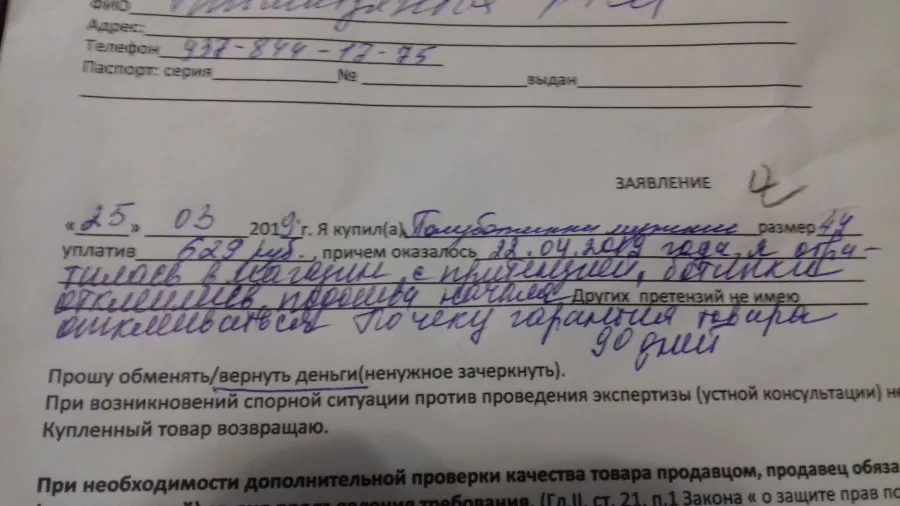 ФИО
Адрес:
Телефон 937-844-12-75
Паспорт: серия № выдан
ЗАЯВЛЕНИЕ
« 25 » 03 2019 г. Я купил(а) Полуботинки мужские размер 44
уплатив 629 руб., причем оказалось 22.04.2019 года я обра-
тилась в магазин с притензией, ботинки
отклеились, подошва начала Других претензий не имею
отклеиваться По чеку гарантия товары
90 дней
Прошу обменять/вернуть деньги(ненужное зачеркнуть).
При возникновений спорной ситуации против проведения экспертизы (устной консультации) не
Купленный товар возвращаю.
При необходимости дополнительной проверки качества товара продавцом, продавец обяза
требования. (Гл.II, ст. 21, п.1 Закона « о защите прав по